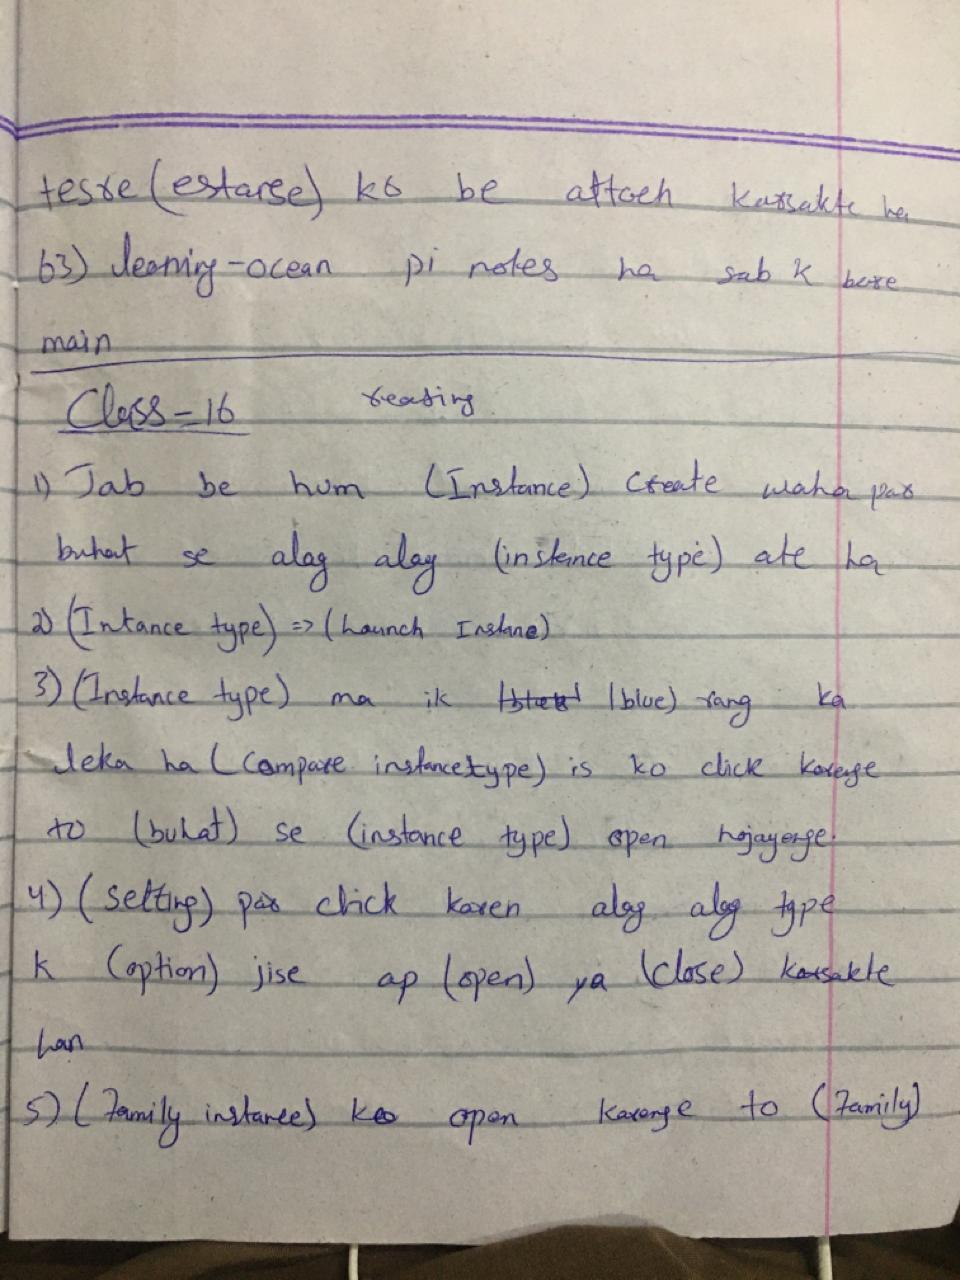 tesre (estarse) ko be attach karsakte ha
63) learning-ocean pi notes ha sab k bare
main
Class-16 reating
1) Jab be hum (Instance) Create waha par
buhat se alag alag (instence type) ate ha
2) (Intance type) => (Launch Instane)
3) (Instance type) ma ik (blue) rang ka
leka ha (Compare instancetype) is ko click karenge
to (buhat) se (instance type) open hojayenge.
4) (setting) par click karen alag alag type
k (option) jise ap (open) ya (close) karsakte
han
5) (Family instance) ko open karenge to (Family)